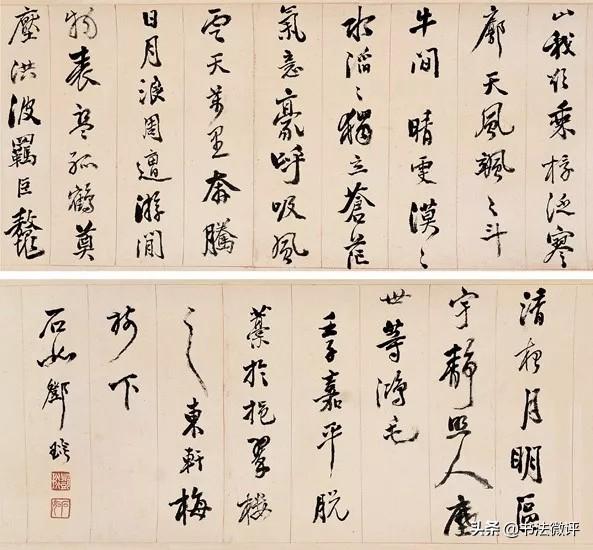 山我欲乘槎泛寒
廓天風颯々斗
牛間晴雯漠々
水滔々獨立蒼茫
氣意豪呼吸風
雲天萬里奔騰
日月浪周遭游閒
物表孤鶴莫
塵洪波羈巨鼇
清夜月明區
宇靜照人塵
世等鴻毛
壬子嘉平脫
藁於挹翠樓
之東軒梅
樹下
石如鄧琰
头条 @书法微评